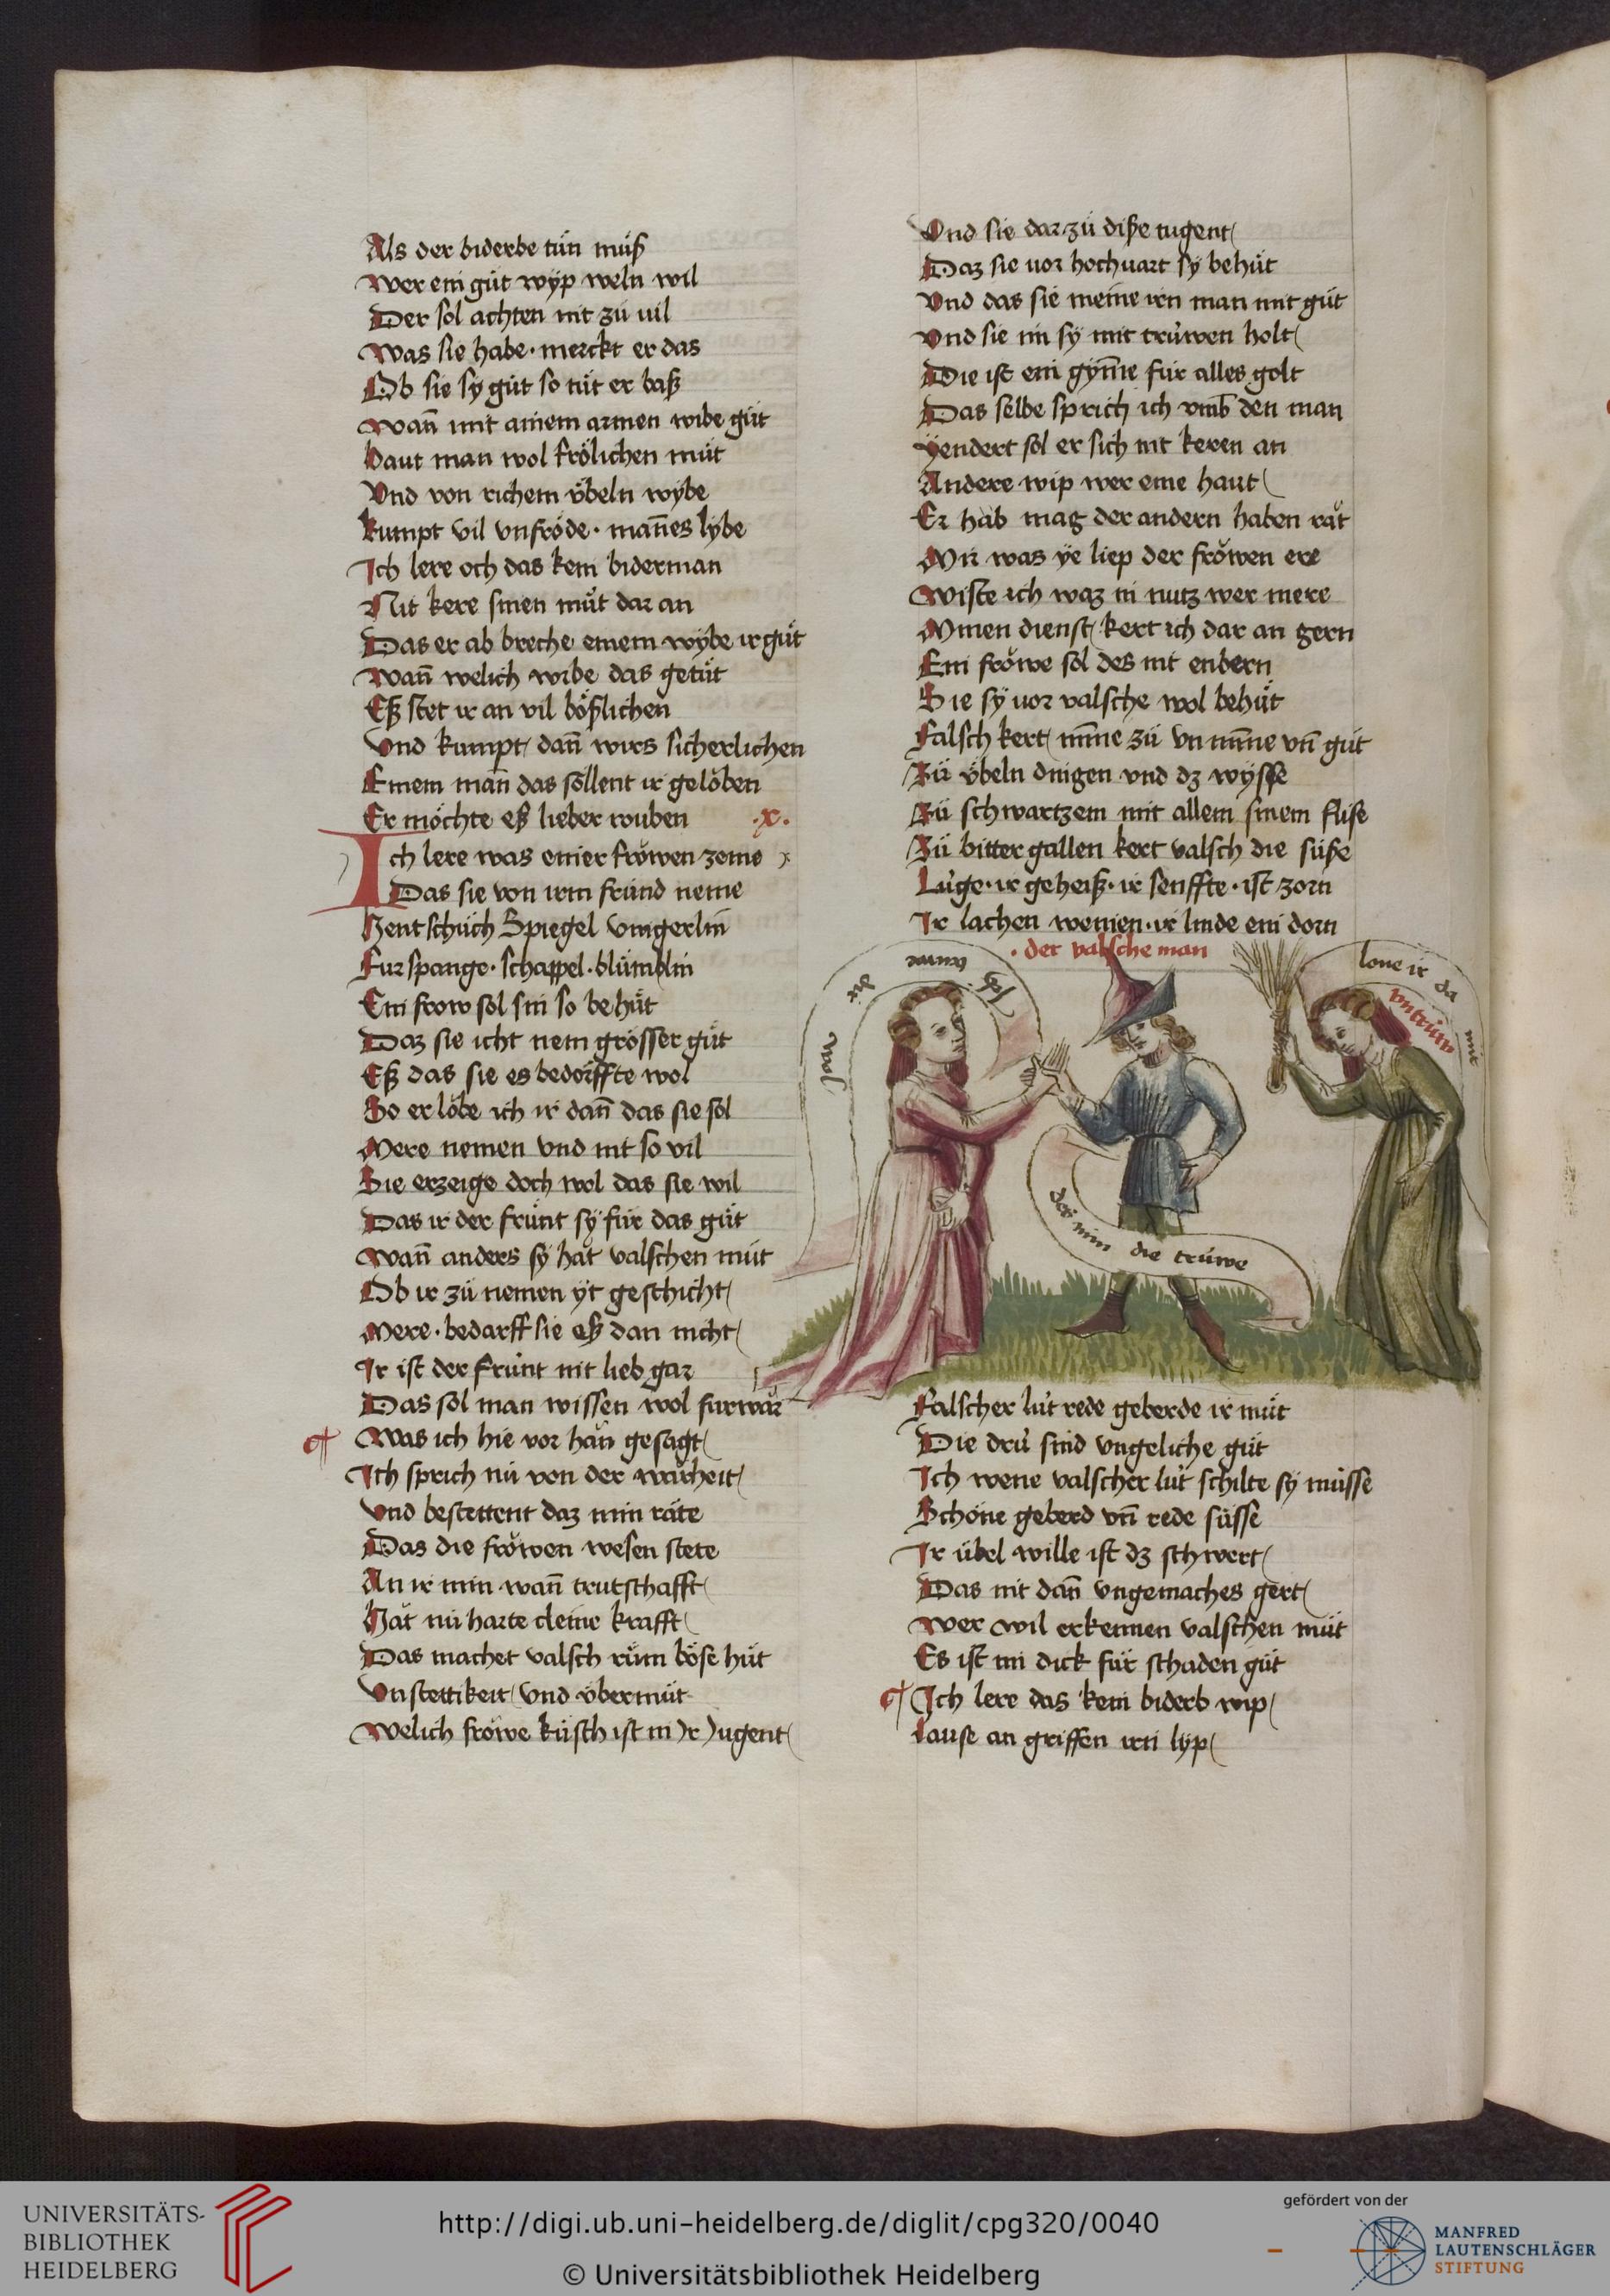 Als der biderbe tůn můß
Wer ein gůt wyp weln wil
Der sol achten nit zů uil
Was sie habe · merckt er das
Ob sie sy gůt so tůt er baß
Wañ mit ainem armen wibe gůt
Haut man wol frölichen můt
Vnd von richem v̈beln wybe
Kumpt vil vnfröde · mañes lybe
Ich lere och das kein biderman
Nit kere sinen můt dar an
Das er ab breche einem wybe ir gůt
Wañ welich wibe das getůt
Eß stet ir an vil bößlichen
Vnd kumpt dañ wirs sicherlichen
Einem mañ das söllent ir gelöben
Er möchte eß lieber rouben ·x·
Ich lere was einer fröwen zeme
Das sie von irm fründ neme
Hentschůch Spiegel vingerlin
Furspange · schappel · blůmblin
Ein frow sol sin so behůt
Daz sie icht nem grösser gůt
Eß das sie es bedörffte wol
So erlöbe ich ir dañ das sie sol
Mere nemen vnd nit so vil
Sie erzeige doch wol das sie wil
Das ir der frünt sy für das gůt
Wañ anders sy hät valschen můt
Ob ir zů nemen yt geschicht
Mere · bedarff sie eß dan nicht
Ir ist der frünt nit lieb gar
Das sol man wissen wol furwar
Was ich hie vor hän gesagt
Ich sprich nů von der warheit
Vnd bestettent daz min räte
Das die fröwen wesen stete
An ir min wañ trutschafft
Hät nů harte cleine krafft
Das machet valsch rům böse hůt
Vnstettikeit vnd v̈bermůt
Welich fröwe küsch ist in ir Iugent
Vnd sie dar zů diße tugent
Daz sie uor hochuart sy behůt
Vnd das sie meine irn man mit gůt
Vnd sie im sy mit trüwen holt
Die ist ein gym̄e für alles golt
Das selbe sprich ich vmb den man
Yendert sol er sich nit keren an
Andere wip wer eine haut
Er hab mag der andern haben rät
Mir was ye liep der fröwen ere
Wiste ich waz in nutz wer mere
Minen dienst kert ich dar an gern
Ein fröwe sol des nit enbern
Sie sy uor valsche wol behůt
Falsch kert mīne zů vnmīne vñ gůt
Zů v̈beln dingen vnd dz wysse
Zů schwartzem mit allem sinem fliße
Zů bitter gallen kert valsch die süße
Lüge · ir geheiß · ir senffte · ist zorn
Ir lachen weinen · ir linde ein dorn
· der valsche man
Ich truwe dir wal
der min die trüwe
lone ir da mit
vntrüw
Falscher lüt rede geberde ir můt
Die drü sind vngeliche gůt
Ich wene valscher lüt schilte sy müsse
Schöne geberd vñ rede süsse
Ir übel wille ist dz schwert
Das nit dañ vngemaches gert
Wer wil erkennen valschen můt
Es ist im dick für schaden gůt
Ich lere das kein biderb wip
Lause an griffen irn lyp
UNIVERSITÄTS-
BIBLIOTHEK
HEIDELBERG
http://digi.ub.uni-heidelberg.de/diglit/cpg320/0040
© Universitätsbibliothek Heidelberg
gefördert von der
MANFRED
LAUTENSCHLÄGER
STIFTUNG